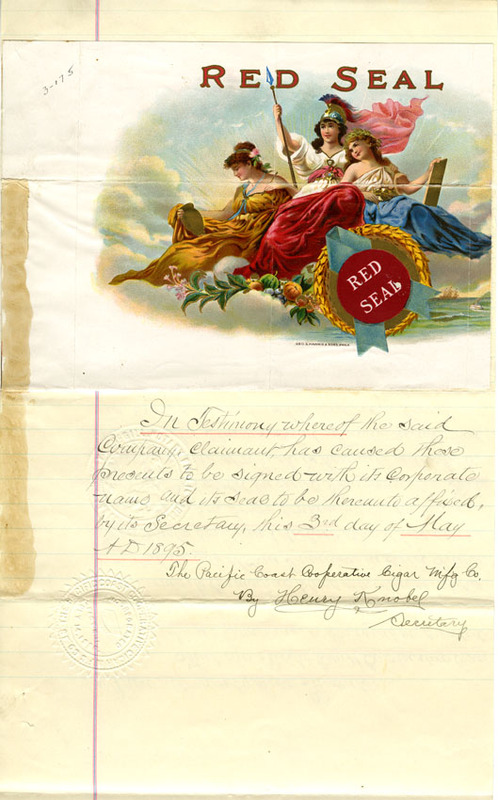 3-175
RED SEAL
RED
SEAL
In Testimony whereof the said
Company, claimant, has caused these
presents to be signed with its corporate
name and its seal to be thereunto affixed,
by its Secretary, this 3rd day of May
A D 1895.
The Pacific Coast Cooperative Cigar Mfg Co.
By Henry Knobel
Secretary